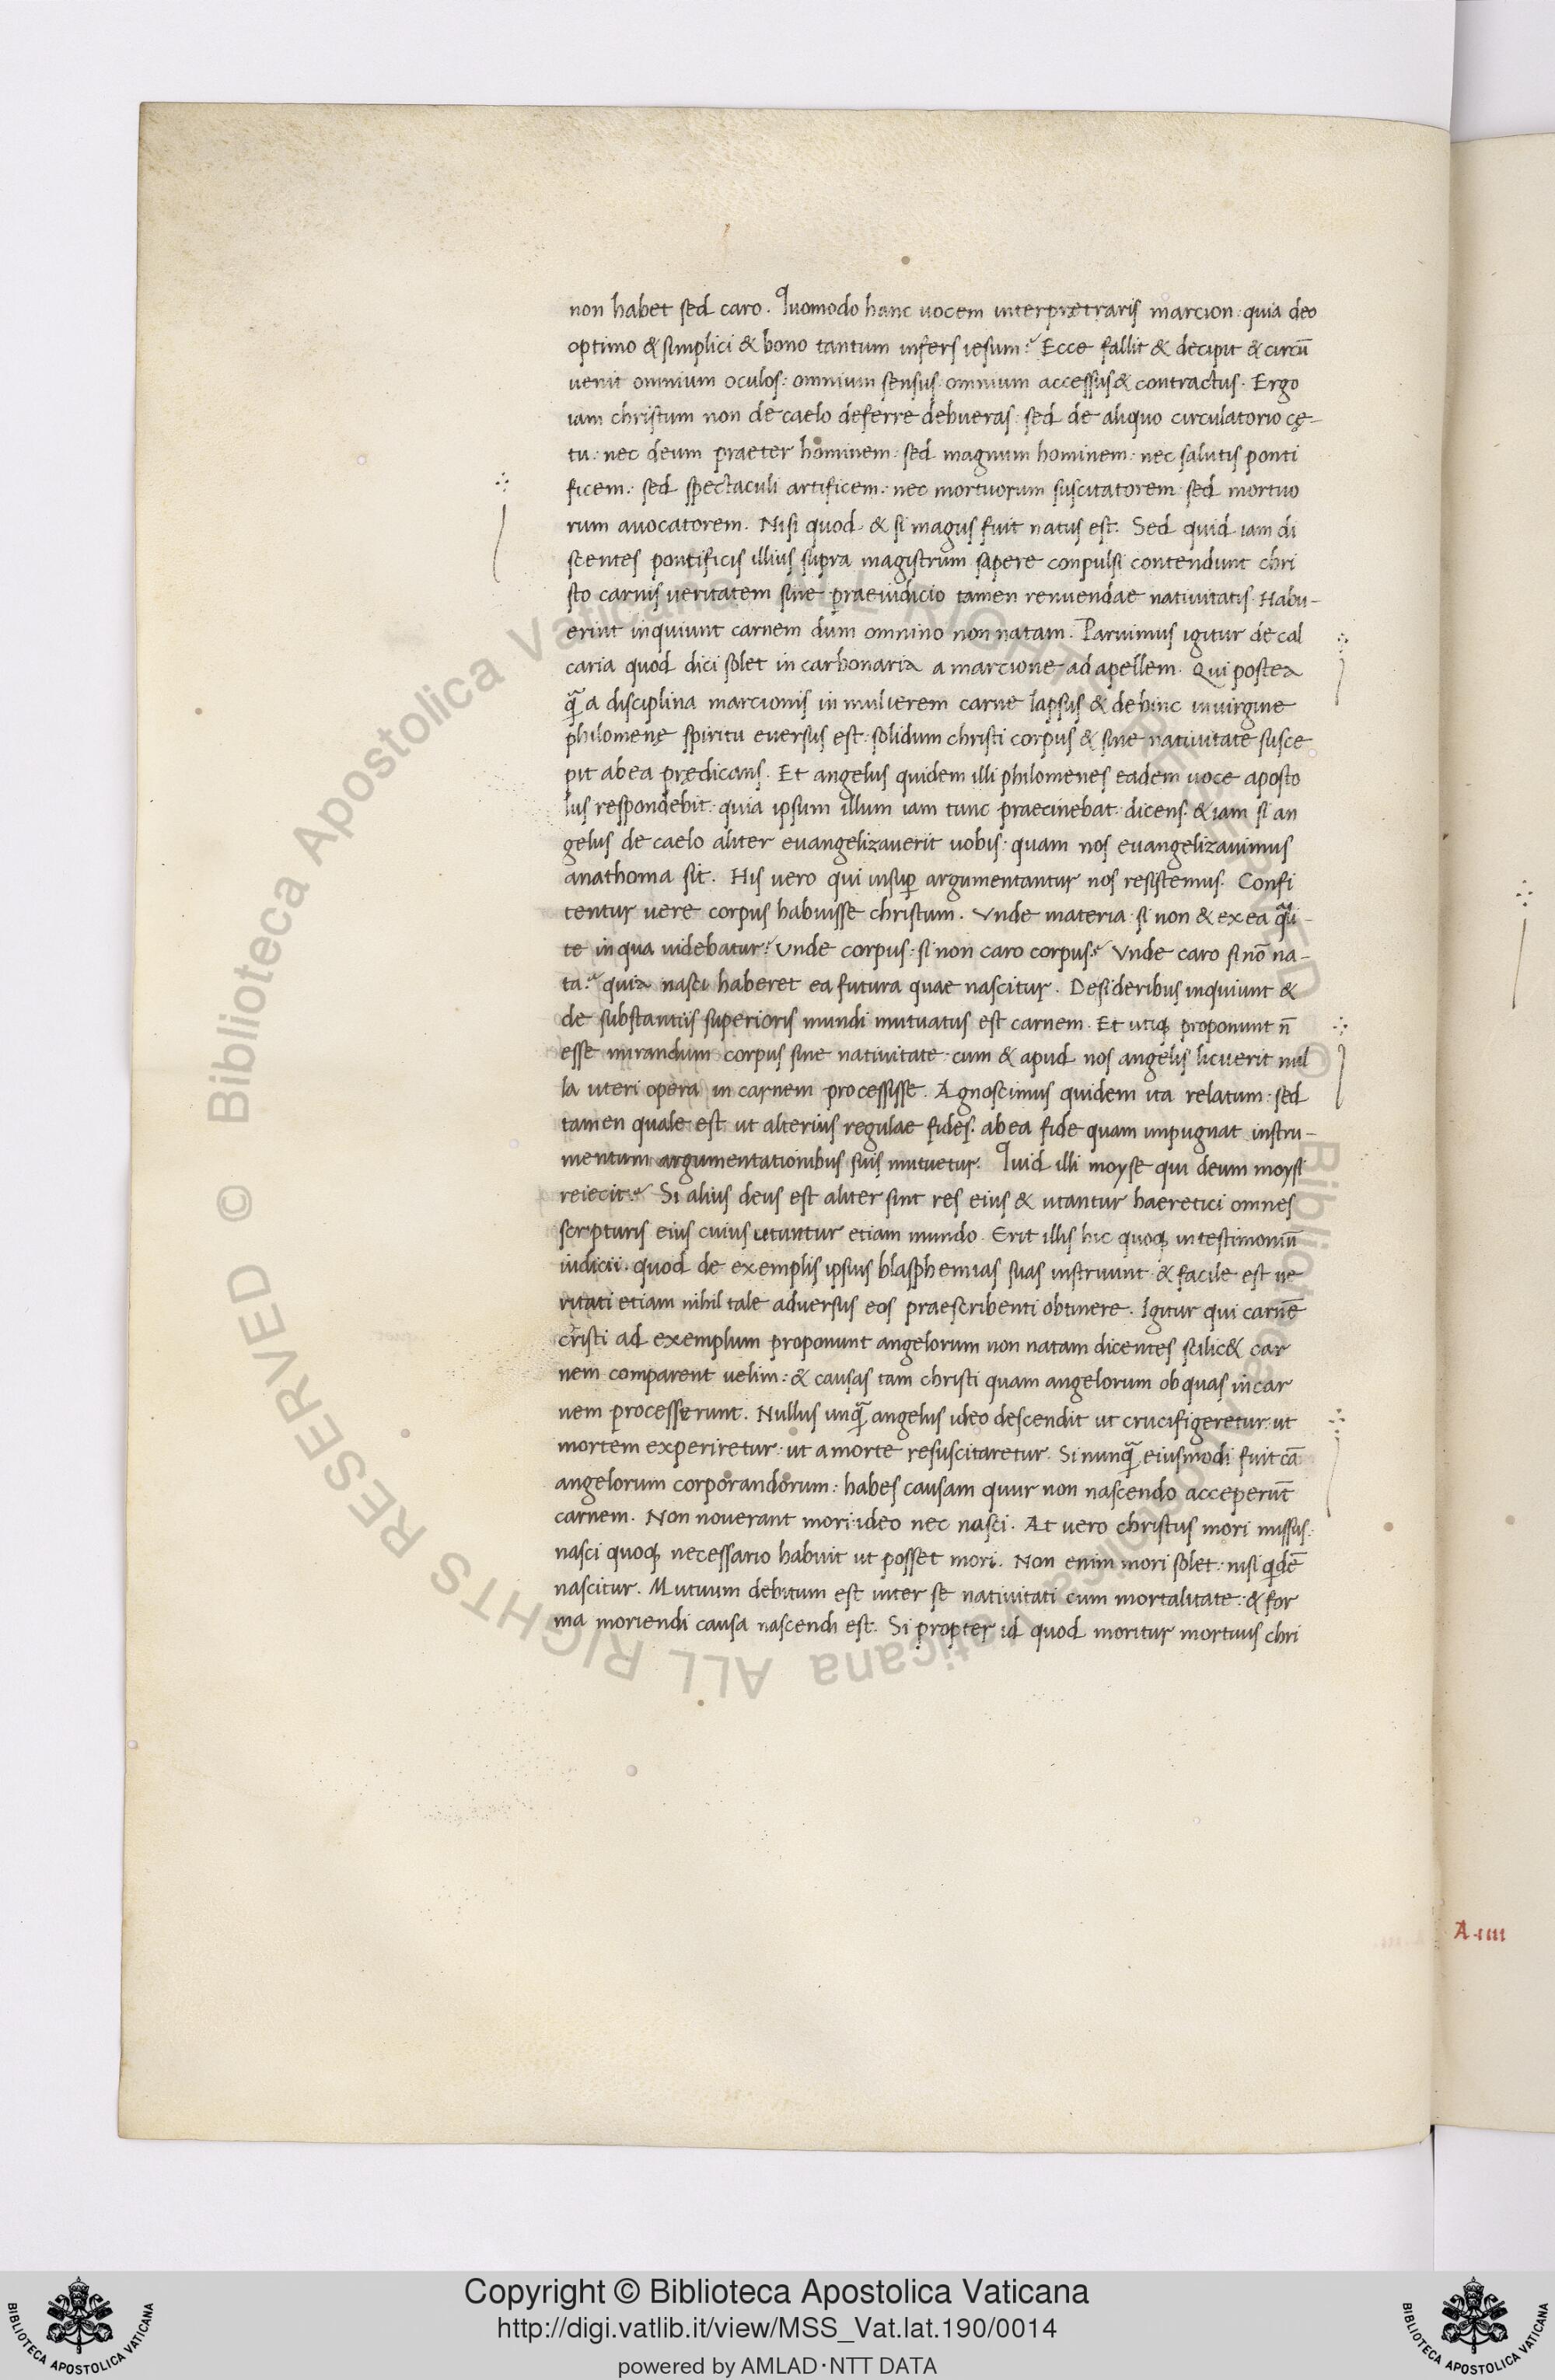 non habet sed caro. Quomodo hanc uocem interprętraris marcion: quia deo
optimo & simplici & bono tantum infers iesum? Ecce fallit & decipit & circū
uenit omnium oculos: omnium sensus: omnium accessus & contractus. Ergo
iam christum non de caelo deferre debueras: sed de aliquo circulatorio cę-
tu: nec deum praeter hominem: sed magnum hominem: nec salutis ponti
ficem: sed spectaculi artificem: nec mortuorum suscitatorem: sed mortuo
rum auocatorem. Nisi quod & si magus fuit natus est. Sed quid iam di
scentes pontificis illius supra magistrum sapere conpulsi contendunt chri
sto carnis ueritatem sine praeiudicio tamen renuendae natiuitatis. Habu-
erint inquiunt carnem dum omnino non natam. Paruimus igitur de cal
caria quod dici solet in carbonaria a marcione ad apellem. Qui postea
q̄ a disciplina marcionis in mulierem carne lapsus & dehinc in uirgine
philomenę spiritu euersus est: solidum christi corpus & sine natiuitate susce
pit ab ea prędicans. Et angelus quidem illi philomenes eadem uoce aposto
lus respondebit: quia ipsum illum iam tunc praecinebat: dicens. & iam si an
gelus de caelo aliter euangelizauerit uobis: quam nos euangelizauimus
anathoma sit. His uero qui insuꝑ argumentantur nos resistemus. Confi
tentur uere corpus habuisse christum. Vnde materia: si non & ex ea q̄li-
te in qua uidebatur? Vnde corpus: si non caro corpus? Vnde caro si nō na-
ta? quia nasci haberet ea futura quae nascitur. Desideribus inquiunt &
de substantiis superioris mundi mutuatus est carnem. Et utiqꝫ proponunt n̄
esse mirandum corpus sine natiuitate: cum & apud nos angelis licuerit nul
la uteri opera in carnem processisse. Agnoscimus quidem ita relatum: sed
tamen quale est ut alterius regulae fides: ab ea fide quam inpugnat instru-
mentum argumentationibus suis mutuetur. Quid illi moyse qui deum moysi
reiecit? Si alius deus est aliter sint res eius & utantur haeretici omnes
scripturis eius cuius utuntur etiam mundo. Erit illis hic quoqꝫ in testimoniū
iudicii. quod de exemplis ipsius blasphemias suas instruunt: & facile est ue
ritati etiam nihil tale aduersus eos praescribenti obtinere. Igitur qui carnē
cristi ad exemplum proponunt angelorum non natam dicentes scilic& car
nem comparent uelim: & causas tam christi quam angelorum ob quas in car
nem processerunt. Nullus unq̄ angelus ideo descendit ut crucifigeretur: ut
mortem experiretur: ut a morte resuscitaretur. Si nunq̄ eiusmodi fuit cā
angelorum corporandorum: habes causam quur non nascendo acceperūt
carnem. Non nouerant mori: ideo nec nasci. At uero christus mori missus:
nasci quoqꝫ necessario habuit ut posset mori. Non enim mori solet: nisi qdē
nascitur. Mutuum debitum est inter se natiuitati cum mortalitate: & for
ma moriendi causa nascendi est. Si propter id quod moritur mortuus chri
A.iiii
© Biblioteca Apostolica Vaticana ALL RIGHTS RESERVED © Biblioteca Apostolica Vaticana ALL RIGHTS RESERVED
Copyright © Biblioteca Apostolica Vaticana
http://digi.vatlib.it/view/MSS_Vat.lat.190/0014
powered by AMLAD·NTT DATA
BIBLIOTECA APOSTOLICA VATICANA
BIBLIOTECA APOSTOLICA VATICANA